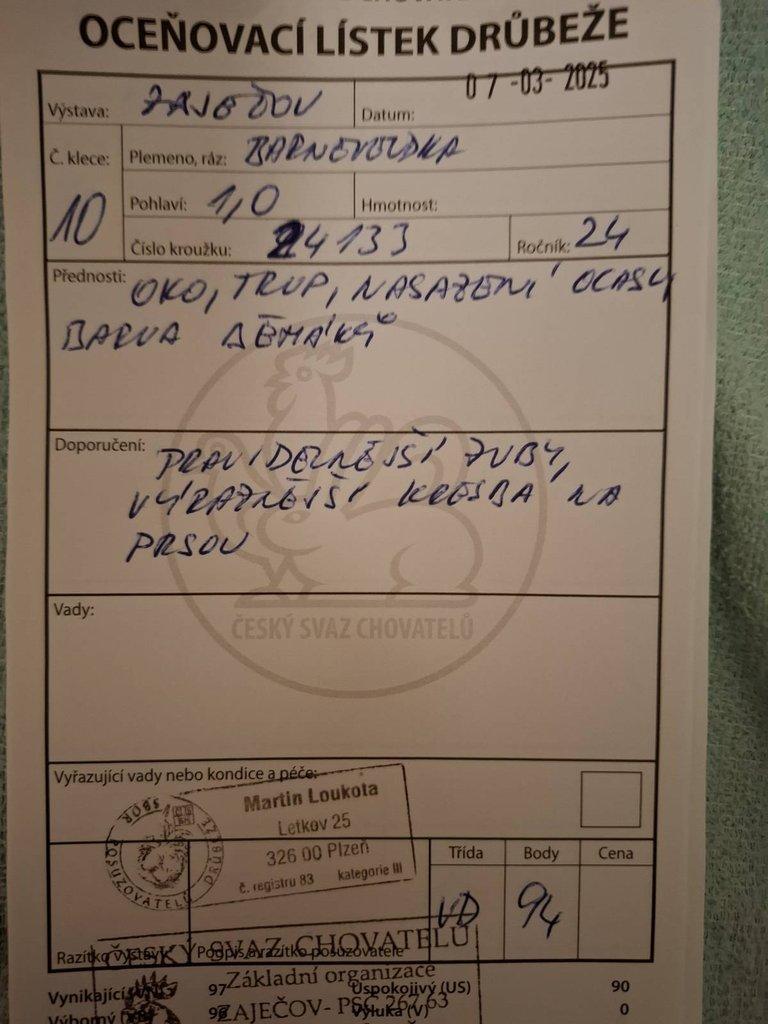 OCEŇOVACÍ LÍSTEK DRŮBEŽE
Výstava: ZAJEČOV Datum: 07-03-2025
Č. klece: Plemeno, ráz: BARNEVELDKA
10 Pohlaví: 1,0 Hmotnost:
Číslo kroužku: 24133 Ročník: 24
Přednosti: OKO, TRUP, NASAZENÍ OCASU
BARVA
Doporučení: PRAVIDELNĚJŠÍ ZUBY,
VÝRAZNĚJŠÍ KRESBA NA
PRSOU
ČESKÝ SVAZ CHOVATELŮ
Vady:
Vyřazující vady nebo kondice a péče:
SBOR POSUZOVATELŮ DRŮBEŽE
Martin Loukota
Letkov 25
326 00 Plzeň
č. registru 83 kategorie III
Třída Body Cena
VD 94
Razítko výstavy Podpis a razítko posuzovatele
ČESKÝ SVAZ CHOVATELŮ
Základní organizace
ZAJEČOV- PSČ 267 63
Vynikající 97 Uspokojivý (US) 90
Výborný Výluka (V) 0